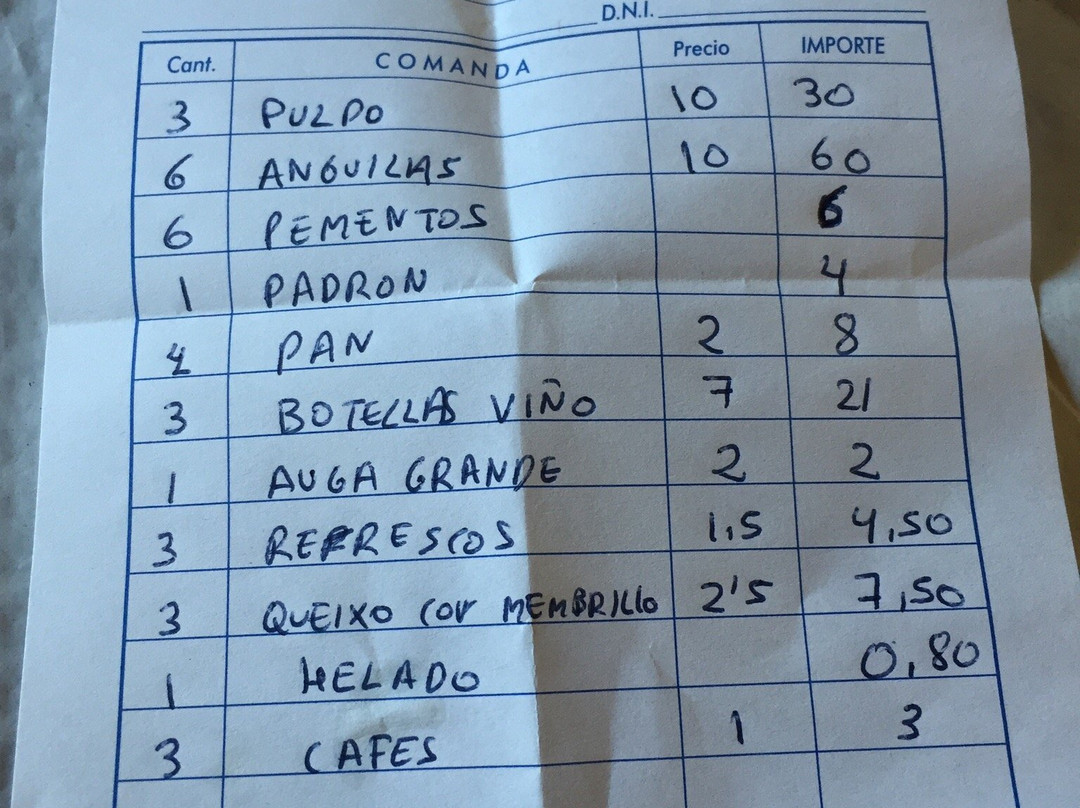 D.N.I.
Cant. COMANDA Precio IMPORTE
3 PULPO 10 30
6 ANGUILAS 10 60
6 PEMENTOS 6
1 PADRON 4
4 PAN 2 8
3 BOTELLAS VIÑO 7 21
1 AUGA GRANDE 2 2
3 REFRESCOS 1,5 4,50
3 QUEIXO CON MEMBRILLO 2'5 7,50
1 HELADO 0,80
3 CAFES 1 3